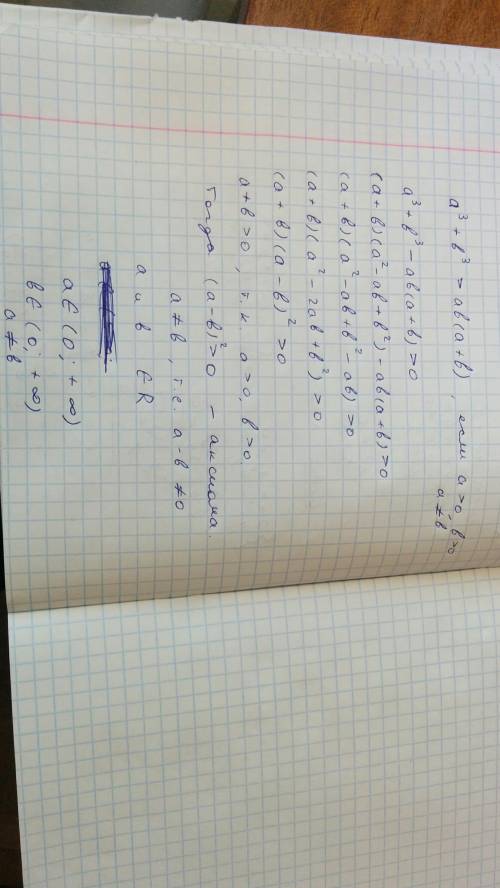 a³ + b³ > ab(a+b), если a>0, b>0
a≠b
a³ + b³ - ab(a+b) > 0
(a+b)(a² - ab + b²) - ab(a+b) > 0
(a+b)(a² - ab + b² - ab) > 0
(a+b)(a² - 2ab + b²) > 0
(a+b)(a-b)² > 0
a+b>0, т.к. a>0, b>0.
Тогда (a-b)² > 0 – аксиома.
a≠b, т.е. a-b ≠ 0
a и b ∈ R
a ∈ (0; +∞)
b ∈ (0; +∞)
a≠b